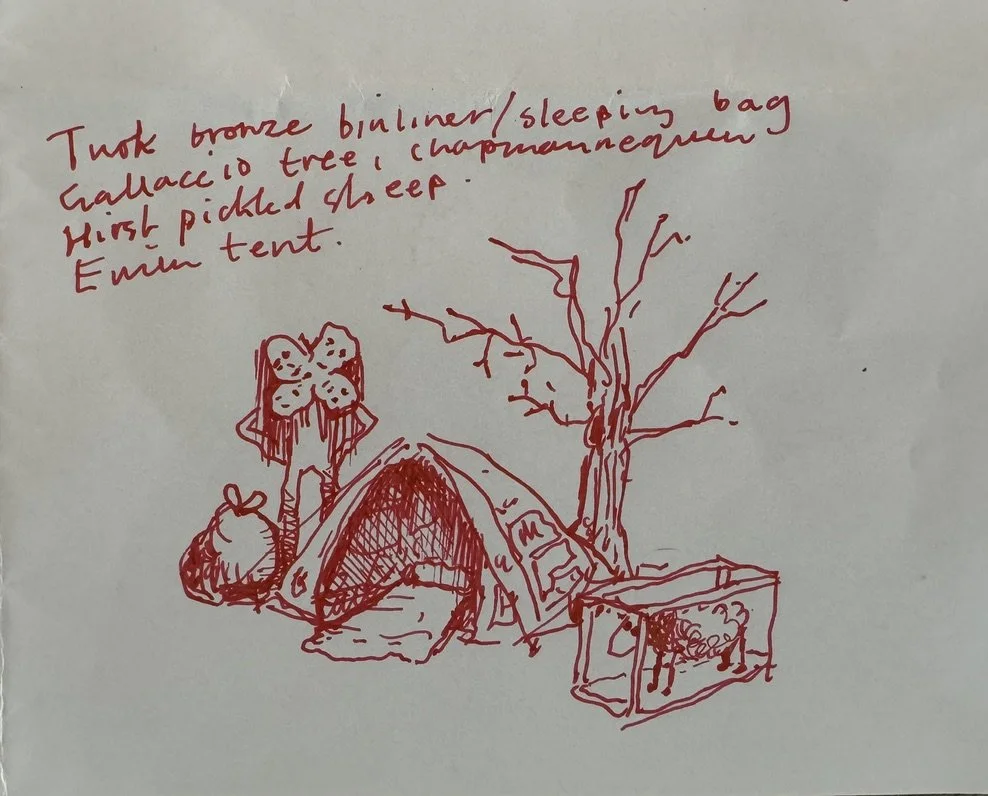 Turk bronze binliner/sleeping bag
Gallaccio tree, chapmannequin
Hirst pickled sheep.
Emin tent.